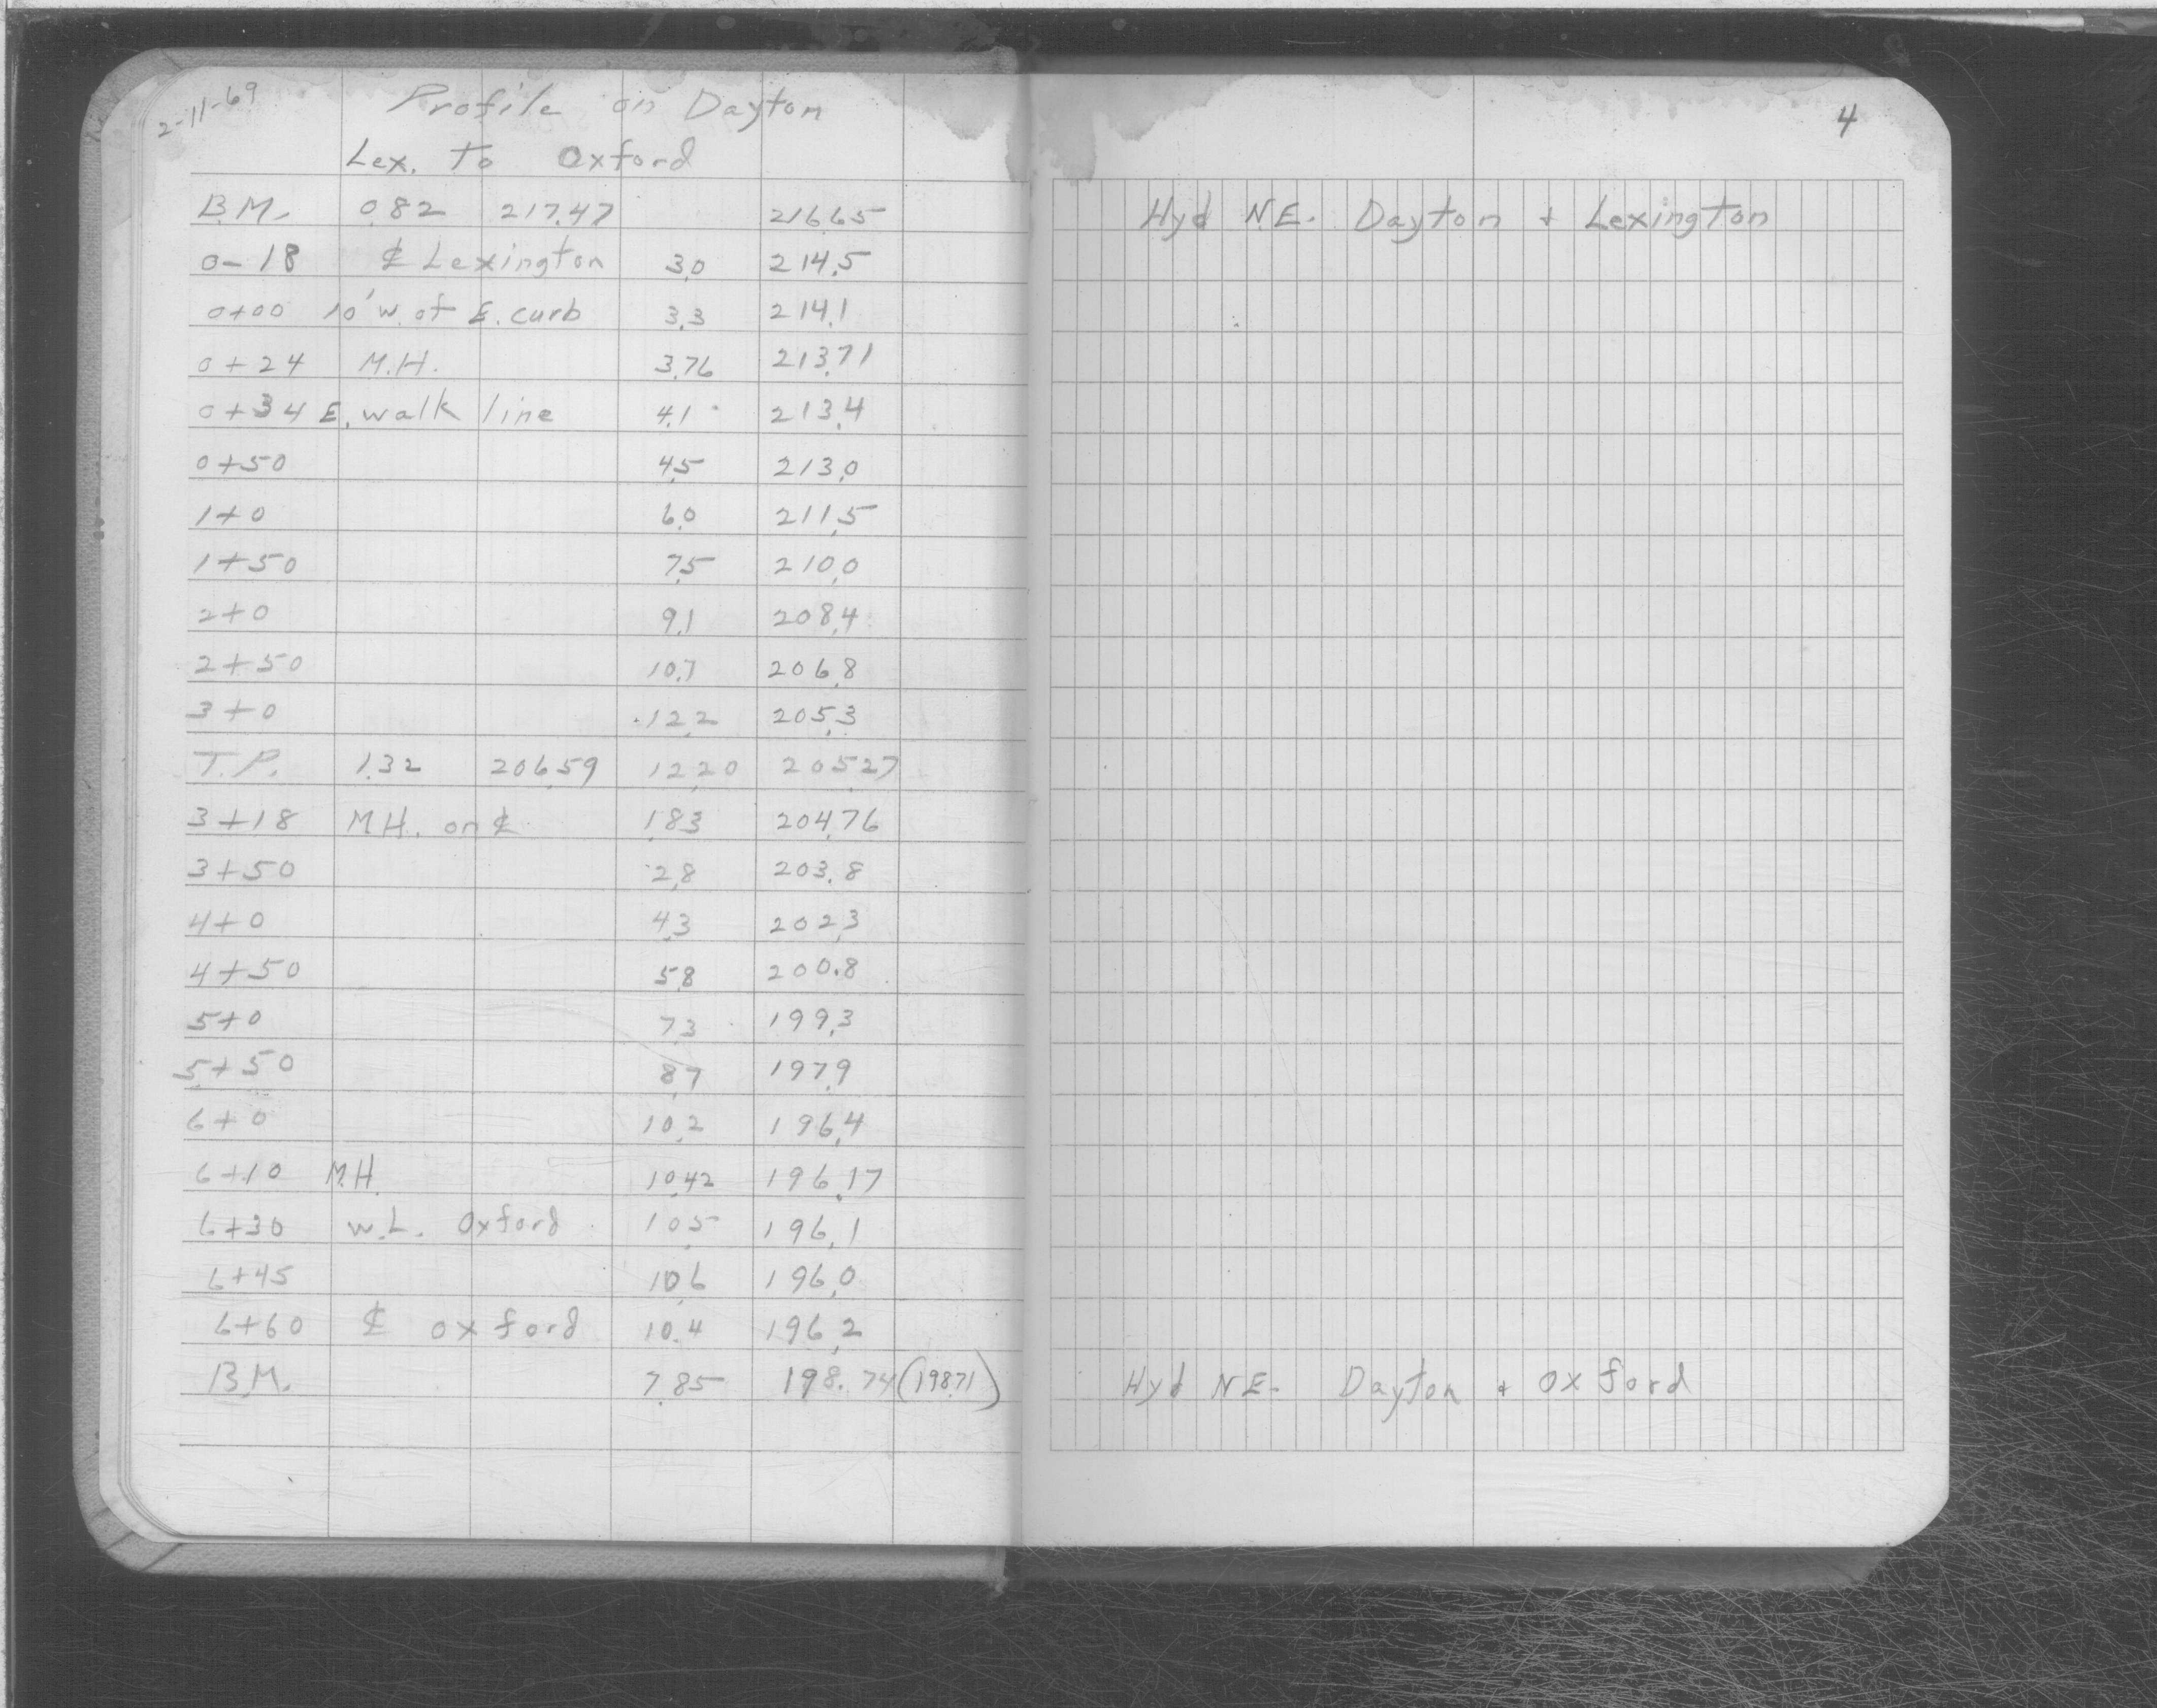 2-11-69 Profile on Dayton
Lex. To Oxford
B.M. 0.82 217.47 216.65
0-18 ℄ Lexington 3.0 214.5
0+00 10' W. of E. curb 3.3 214.1
0+24 M.H. 3.76 213.71
0+34 E. walk line 4.1 213.4
0+50 4.5 213.0
1+0 6.0 211.5
1+50 7.5 210.0
2+0 9.1 208.4
2+50 10.7 206.8
3+0 12.2 205.3
T.P. 1.32 206.59 12.20 205.27
3+18 M.H. on ℄ 1.83 204.76
3+50 2.8 203.8
4+0 4.3 202.3
4+50 5.8 200.8
5+0 7.3 199.3
5+50 8.7 197.9
6+0 10.2 196.4
6+10 M.H. 10.42 196.17
6+30 W.L. Oxford 10.5 196.1
6+45 10.6 196.0
6+60 ℄ Oxford 10.4 196.2
B.M. 7.85 198.74 (198.71)
4
Hyd N.E. Dayton + Lexington
Hyd N.E. Dayton + Oxford